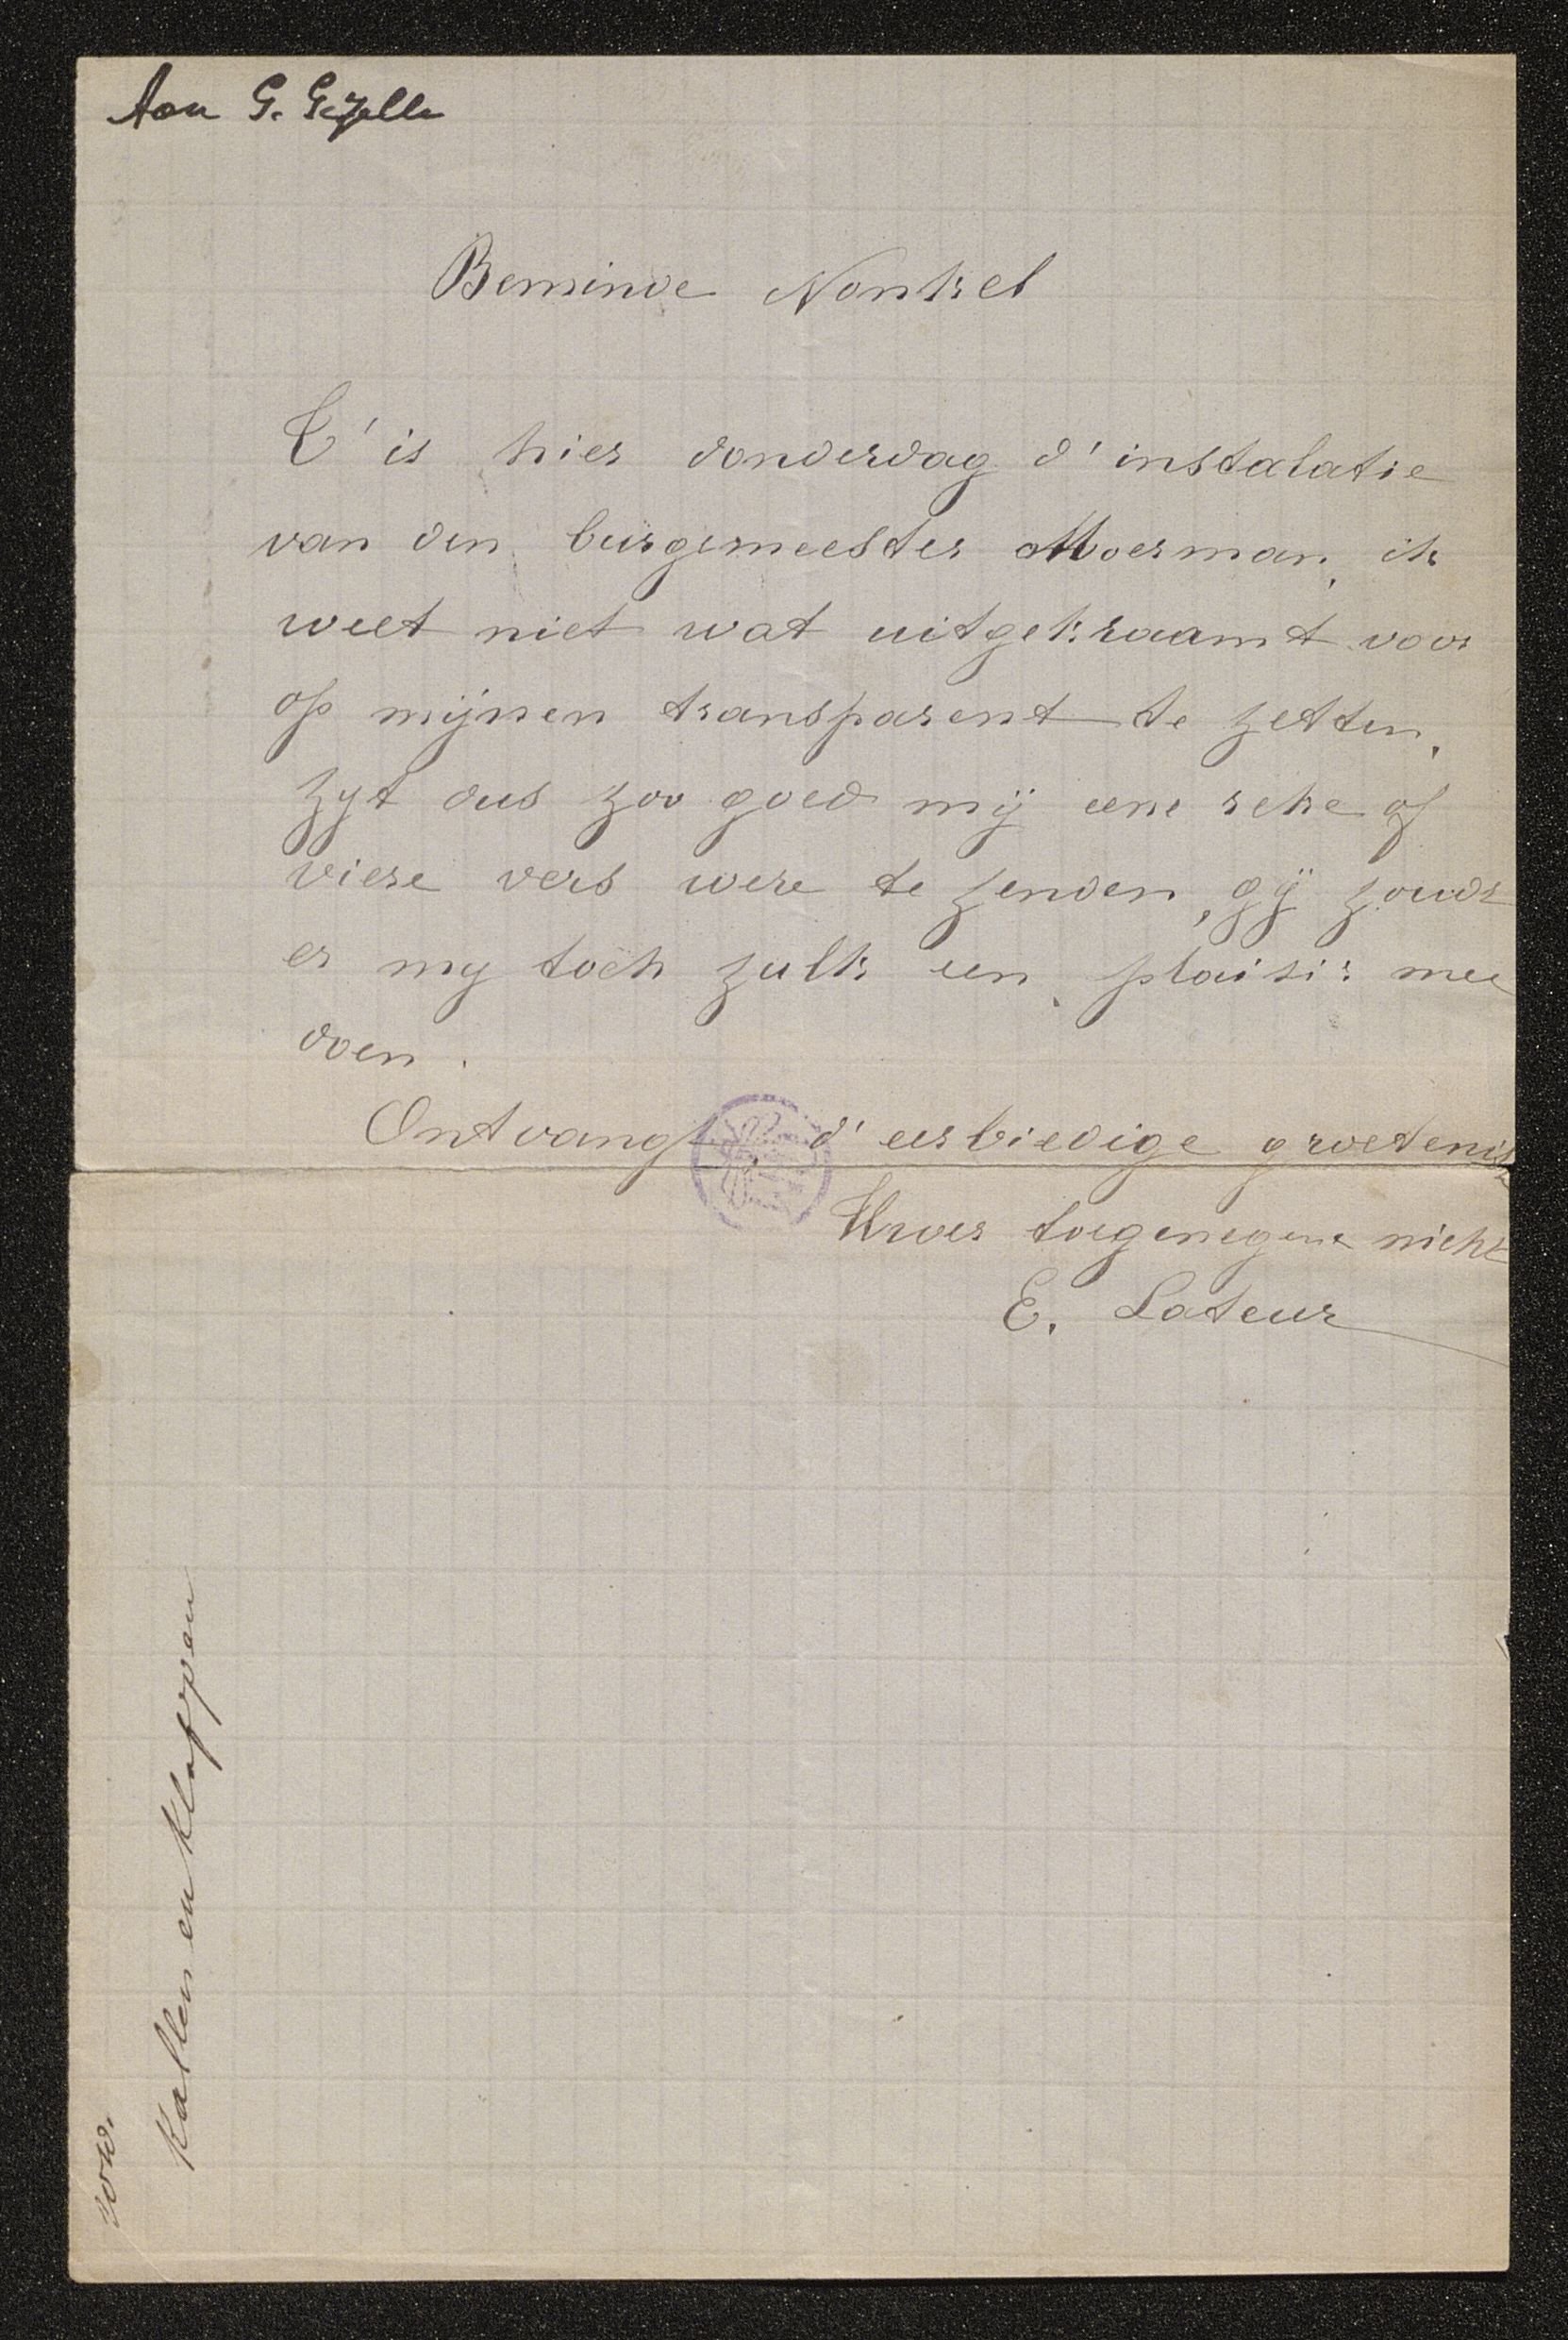 Aan G. Gezelle
Beminde Nonkel
T' is hier donderdag d' instalatie
van den burgemeester Moerman, ik
weet niet wat uitgekraamt voor
op mijnen transparent te zetten,
zyt dus zoo goed mij eene reke of
viere vers were te zenden, gij zoudt
er my toch zulk een plaisir mee
doen.
Ontvangt d' eerbiedige groetenis
Uwer toegenegene nicht
E. Lateur
Kallen en klappen